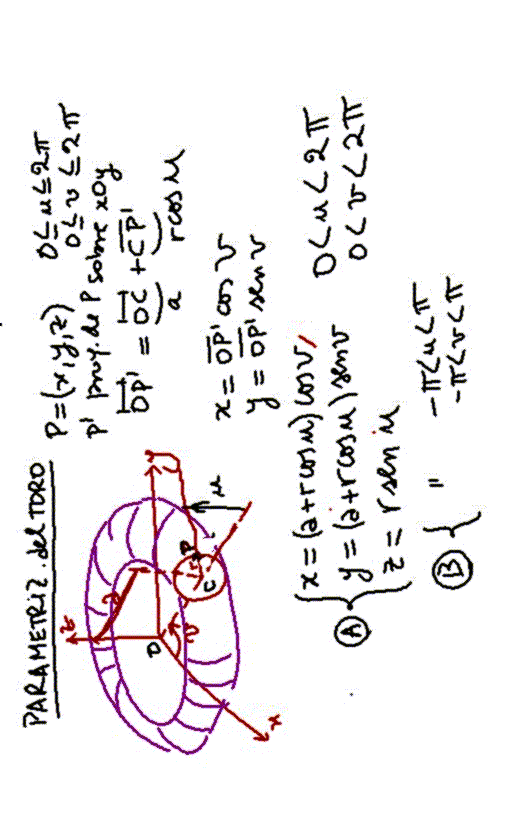 PARAMETRIZ. del TORO
P=(x,y,z) 0≤u≤2π
0≤v≤2π
P' proy. de P sobre xOy
OP' = OC + CP'
a r cos u
x = OP' cos v
y = OP' sen v
z
a
O
v
x
y
r
P
C
u
A { x = (a+r cos u) cos v,
y = (a+r cos u) sen v
z = r sen u
0<u<2π
0<v<2π
B { " -π<u<π
-π<v<π